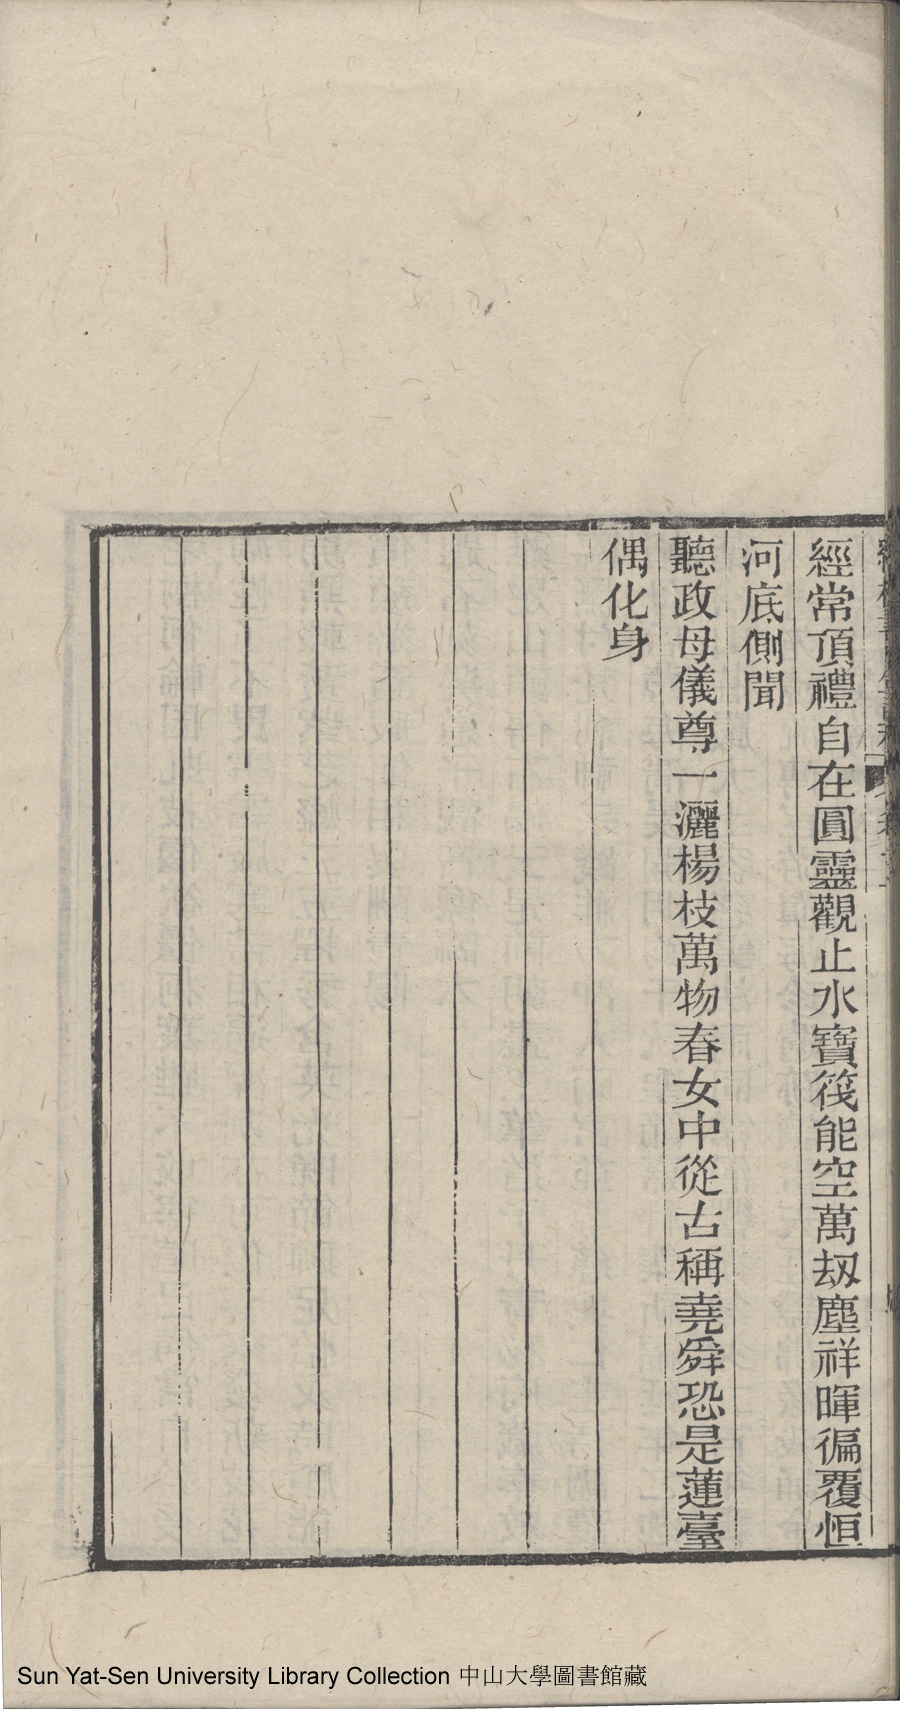 經常頂禮自在圓靈觀止水寶筏能空萬刼塵祥暉徧覆恒
河底側聞
聽政母儀尊一灑楊枝萬物春女中從古稱堯舜恐是蓮臺
偶化身
Sun Yat-Sen University Library Collection 中山大學圖書館藏